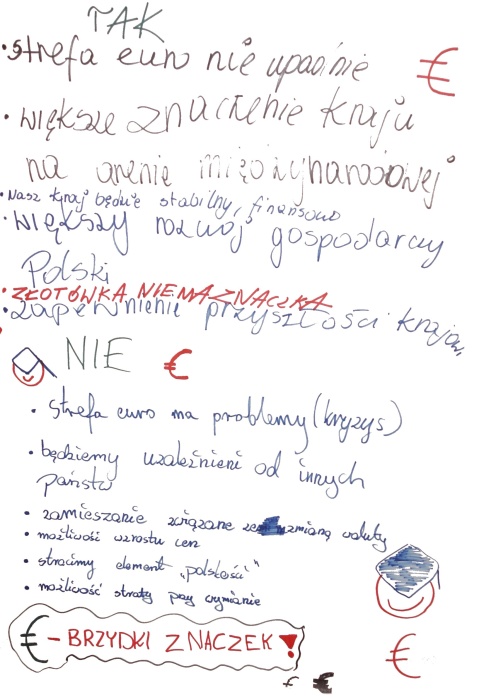 TAK
• strefa euro nie upadnie €
• większe znaczenie kraju
na arenie międzynarodowej
• Nasz kraj będzie stabilny, finansowo
• większy rozwój gospodarczy
Polski
• ZŁOTÓWKA NIE MA ZNACZKA
• zapewnienie przyszłości krajowi
NIE €
• strefa euro ma problemy (kryzys)
• będziemy uzależnieni od innych
państw
• zamieszanie związane ze zmianą waluty
• możliwość wzrostu cen
• stracimy element „polskości"
• możliwość straty przy wymianie
€ - BRZYDKI ZNACZEK!
€
€ €